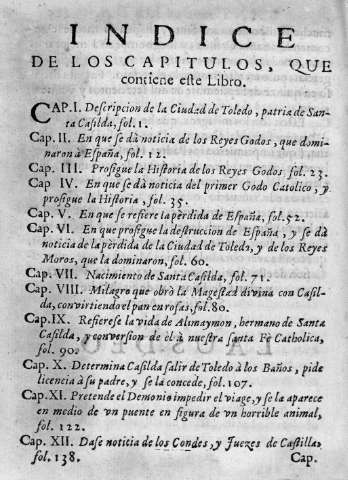 INDICE
DE LOS CAPITULOS, QUE
contiene este Libro.
CAP. I. Descripcion de la Ciudad de Toledo, patria de San-
ta Casilda, fol. 1.
Cap. II. En que se dà noticia de los Reyes Godos, que domi-
naron à España, fol. 12.
Cap. III. Prosigue la Historia de los Reyes Godos fol. 23.
Cap IV. En que se dà noticia del primer Godo Catolico, y
prosigue la Historia, fol. 35.
Cap. V. En que se refiere la pèrdida de España, fol. 52.
Cap. VI. En que prosigue la destruccion de España, y se dà
noticia de la pèrdida de la Ciudad de Toledo, y de los Reyes
Moros, que la dominaron, fol. 60.
Cap. VII. Nacimiento de Santa Casilda, fol. 71.
Cap. VIII. Milagro que obrò la Magestad divina con Casil-
da, convirtiendo el pan en rosas, fol. 80.
Cap. IX. Refierese la vida de Alimaymon, hermano de Santa
Casilda, y conversion de el à nuestra santa Fè Catholica,
fol. 90.
Cap. X. Determina Casilda salir de Toledo à los Baños, pide
licencia à su padre, y se la concede, fol. 107.
Cap. XI. Pretende el Demonio impedir el viage, y se la aparece
en medio de vn puente en figura de vn horrible animal,
fol. 122.
Cap. XII. Dase noticia de los Condes, y Juezes de Castilla,
fol. 138. Cap.